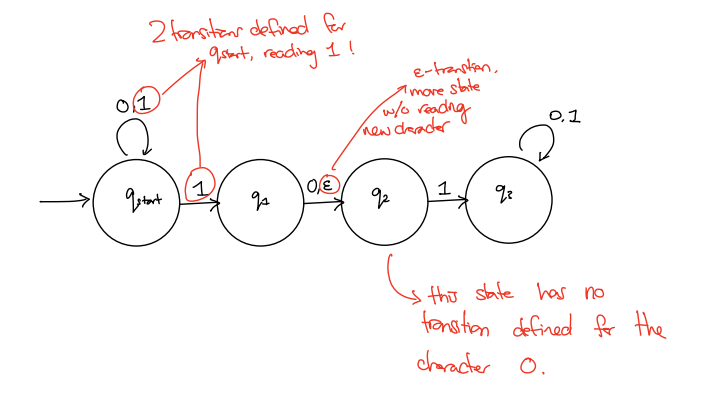 2 transitions defined for
qstart, reading 1 !
ε-transition,
move state
w/o reading
new character
0,1
0,1
qstart
1
q1
0,ε
q2
1
q3
this state has no
transition defined for the
character 0.